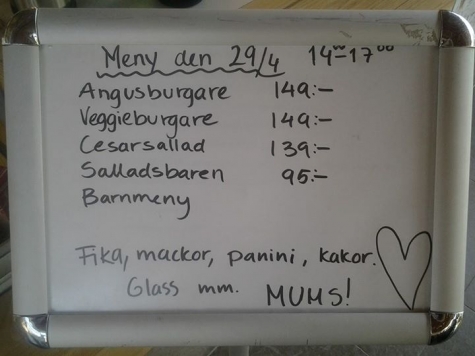 Meny den 29/4 14⁰⁰-17⁰⁰
Angusburgare 149:-
Veggieburgare 149:-
Cesarsallad 139:-
Salladsbaren 95:-
Barnmeny
Fika, mackor, panini, kakor.
Glass mm. MUMS!